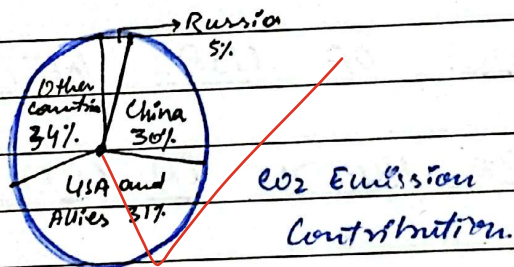 Russia
5%
Other
Countries
34%
China
30%
USA and
Allies 31%
CO2 Emission
Contribution.